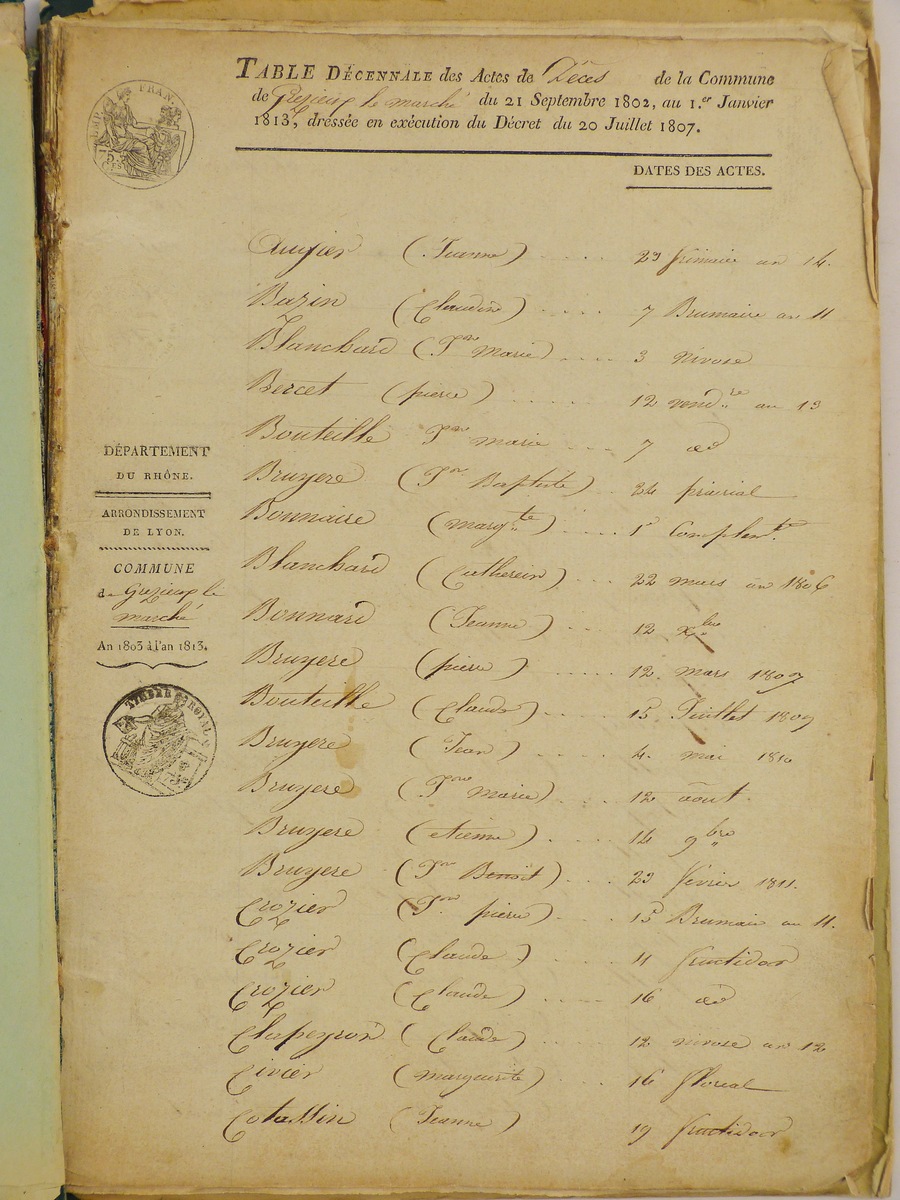 TABLE DÉCENNALE des Actes de Décès de la Commune
de Grezieux le marché du 21 Septembre 1802, au 1.er Janvier
1813, dressée en exécution du Décret du 20 Juillet 1807.
DATES DES ACTES.
Augier (Jeanne) 29 frimaire an 14.
Bazin (Claudine) 7 Brumaire an 11
Blanchard (Jne marie) 3 Nivose
Bercet (pierre) 12 vend.re an 13
Bouteille Jne marie 7 id
Bruyere (Jn Baptiste) 24 prairial
Bonnaire (marg.te) 1er Complem.re
Blanchard (Catherein) 22 mars an 1806
Bonnard (Jeanne) 12 xbre
Bruyere (pierre) 12 mars 1807
Bouteille (Claude) 15 Juillet 1809
Bruyere (Jean) 4 mai 1810
Bruyere (Jne marie) 12 aout
Bruyere (etienne) 14 9bre
Bruyere (Jn Benoit) 23 fevrier 1811.
Crozier (Jn pierre) 15 Brumair an 11.
Crozier (Claude) 11 fructidor
Crozier (Claude) 16 id
Clapeyron (Claude) 12 nivose an 12
Civier (marguerite) 16 floreal
Cotassin (Jeanne) 19 fructidor
EMP. FRAN.
DÉPARTEMENT
DU RHÔNE.
ARRONDISSEMENT
DE LYON.
COMMUNE
de Grezieux le
marché
An 1803 à l'an 1813.
TIMBRE ROYAL